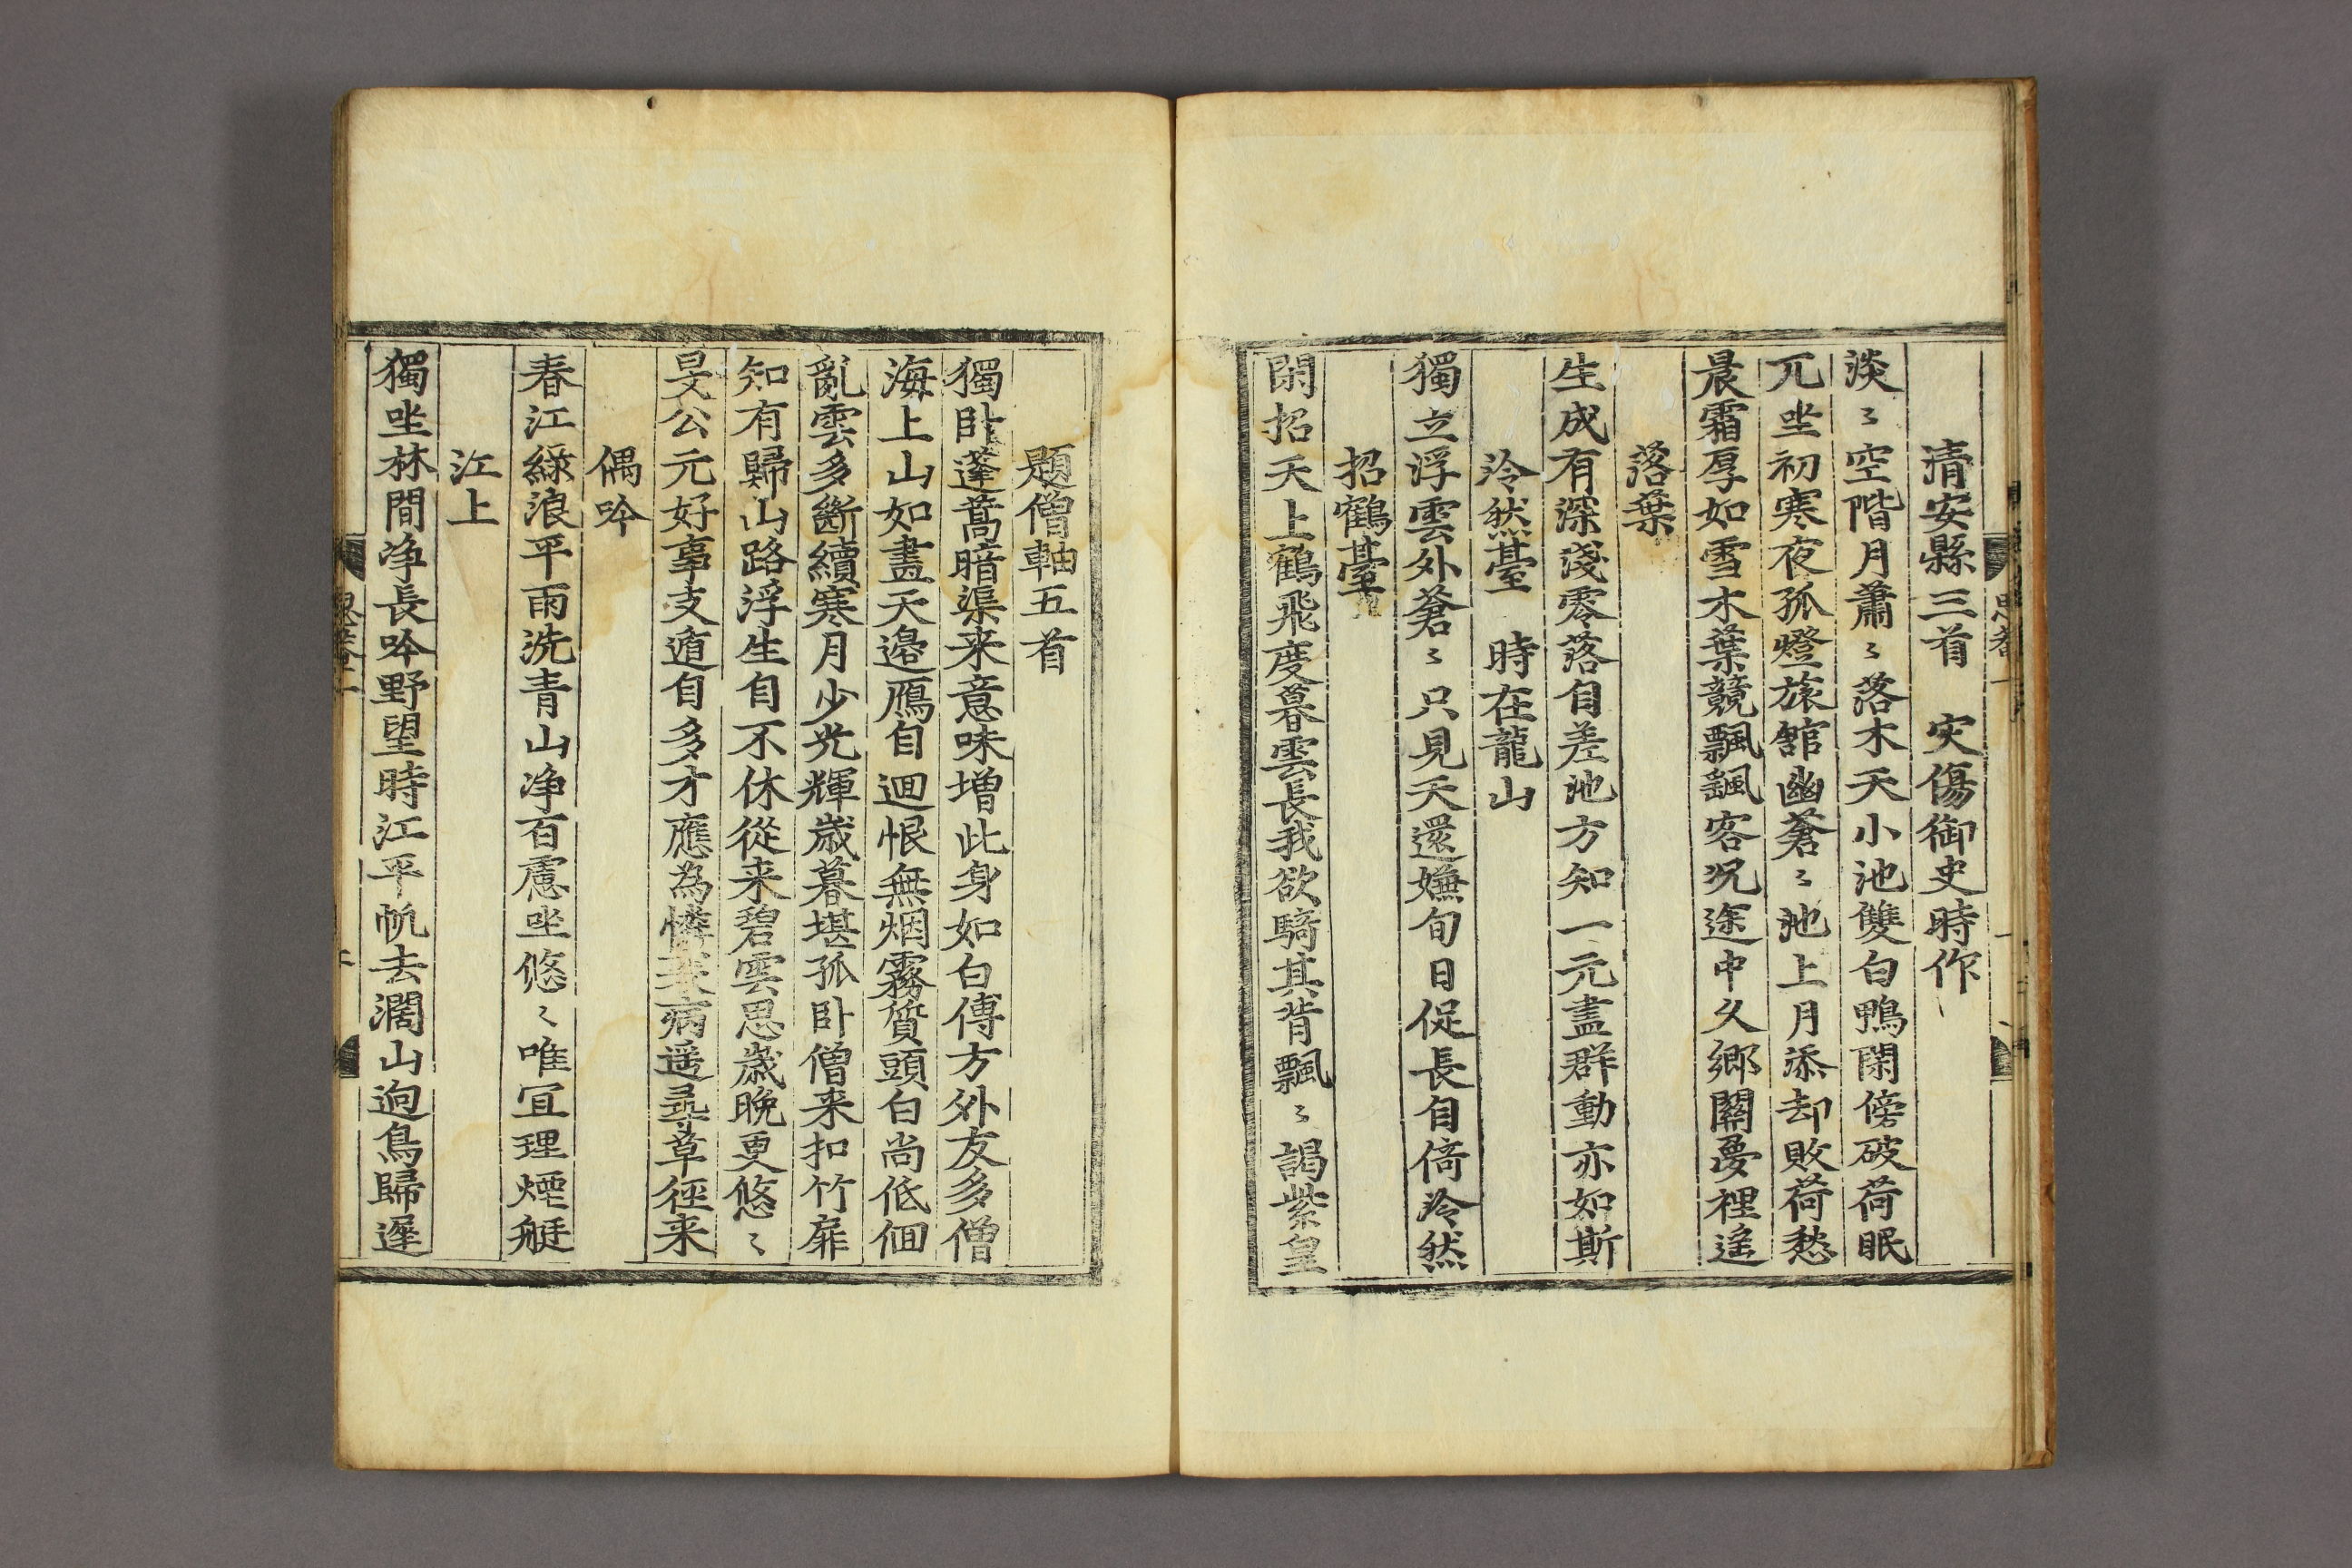 清安縣三首 灾傷御史時作
淡〻空階月蕭〻落木天小池雙白鴨閑傍破荷眠
兀坐初寒夜孤燈旅舘幽蒼〻池上月添却敗荷愁
晨霜厚如雪木葉競飄颻客况途中久鄉關夢裡遙
落葉
生成有深淺零落自差池方知一元盡群動亦如斯
泠然臺 時在龍山
獨立浮雲外蒼〻只見天還嫌旬日促長自倚泠然
招鶴臺
閑招天上鶴飛度暮雲長我欲騎其背飄〻謁紫皇
題僧軸五首
獨卧蓬蒿暗渠来意味增此身如白傳方外友多僧
海上山如畫天邉鴈自迴恨無烟霧質頭白尚低佪
亂雲多斷續寒月少光輝歲暮堪孤卧僧来扣竹扉
知有歸山路浮生自不休從来碧雲思歲晚更悠〻
旻公元好事支遁自多才應為憐衰病遥尋草徑来
偶吟
春江綠浪平雨洗青山净百慮坐悠〻唯冝理煙艇
江上
獨坐林間净長吟野望時江平帆去濶山逈鳥歸遲